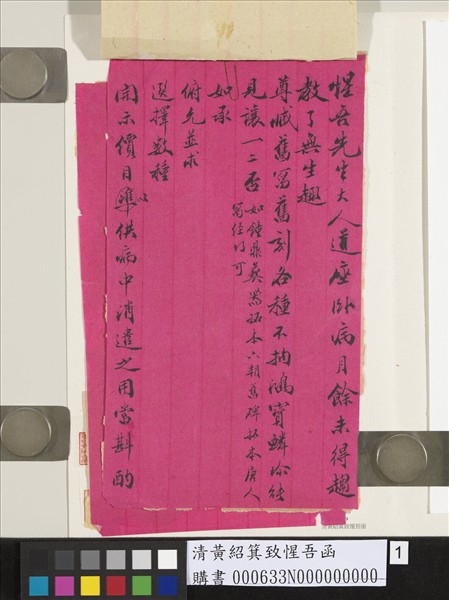 惺吾先生大人道座臥病月餘未得趨
教了無生趣
尊藏舊寫舊刻各種不拘鴻寶鱗珍能
見讓一二否如鐘鼎彝器拓本六朝舊碑拓本唐人
寫經均可
如承
俯允並求
選擇數種
開示價目以備供病中消遣之用當斟酌
清黃紹箕致惺吾函
清黃紹箕致惺吾函
購書 000633N000000000
1